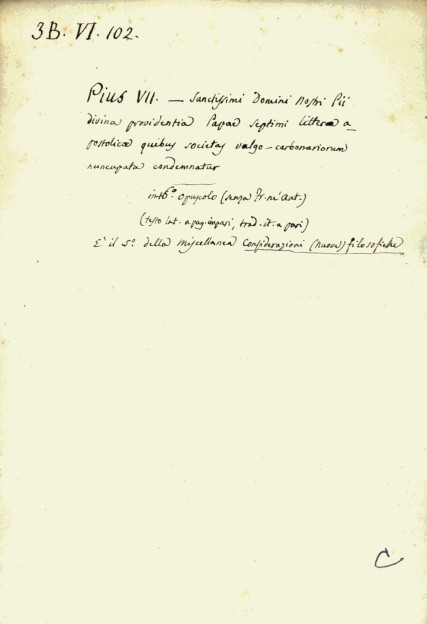 3B. VI. 102.
Pius VII. — Sanctissimi Domini Nostri Pii
divina providentia Papae septimi litteræ a-
postolicæ quibus societas vulgo-carbonariorum
nuncupata condemnatur
opuscolo (senza fr. ne' ant.)
(testo lat. a pag. impari, trad. it. a pari)
E' il 5° della miscellanea Considerazioni (nuove) filosofiche
C